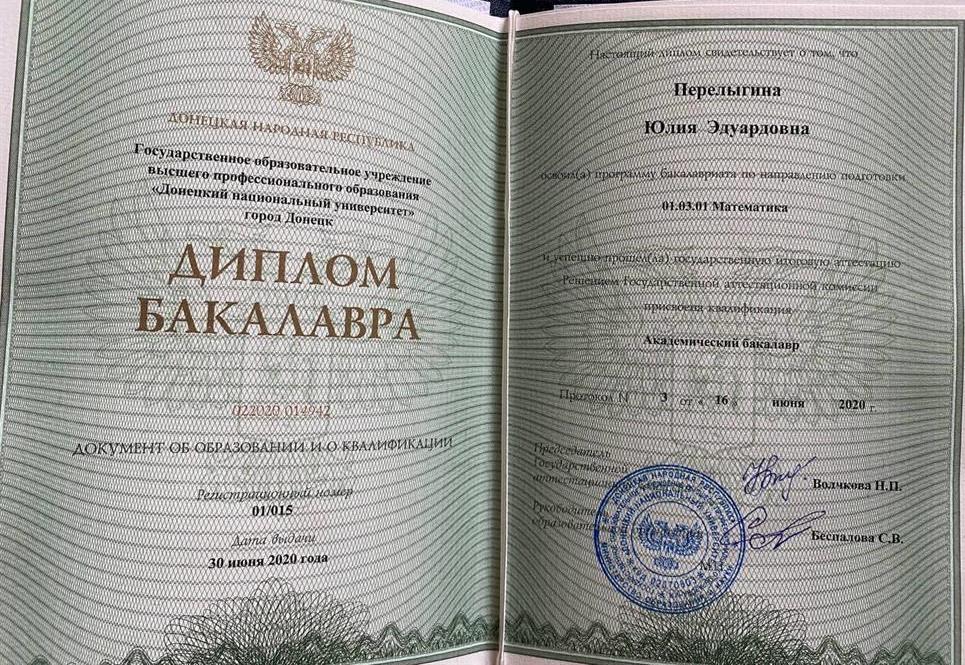 ДОНЕЦКАЯ НАРОДНАЯ РЕСПУБЛИКА
Государственное образовательное учреждение
высшего профессионального образования
«Донецкий национальный университет»
город Донецк
ДИПЛОМ
БАКАЛАВРА
022020 014942
ДОКУМЕНТ ОБ ОБРАЗОВАНИИ И О КВАЛИФИКАЦИИ
Регистрационный номер
01/015
Дата выдачи
30 июня 2020 года
Настоящий диплом свидетельствует о том, что
Перелыгина
Юлия Эдуардовна
освоил(а) программу бакалавриата по направлению подготовки
01.03.01 Математика
и успешно прошел(ла) государственную итоговую аттестацию
Решением Государственной аттестационной комиссии
присвоена квалификация
Академический бакалавр
Протокол N 3 от « 16 » июня 2020 г.
Председатель
Государственной
аттестационной
Волчкова Н.П.
Руководитель
Беспалова С.В.
М.П.